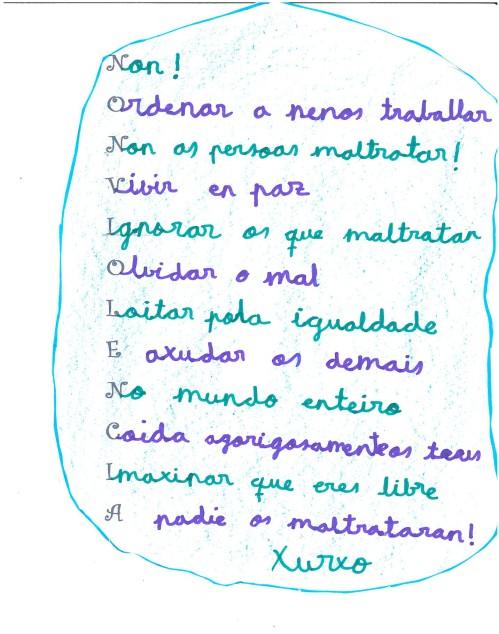 Non!
Ordenar a nenos traballar
Non as persoas maltratar!
Vivir en paz
Ignorar os que maltratan
Olvidar o mal
Loitar pola igualdade
E axudar os demais
No mundo enteiro
Coida agarigosamente os teus
Imaxinar que eres libre
A nadie os maltrataran!
Xurxo